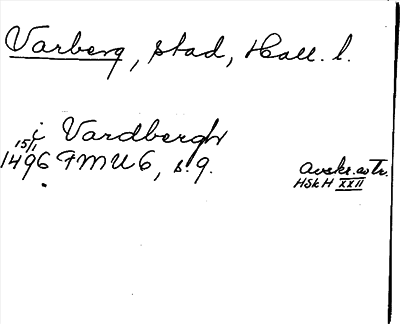 Varberg, stad, Hall. l.
i Vardbergh
15/1
1496 FMU 6, s. 9.
Avskr. o tr.
HSkH XXII